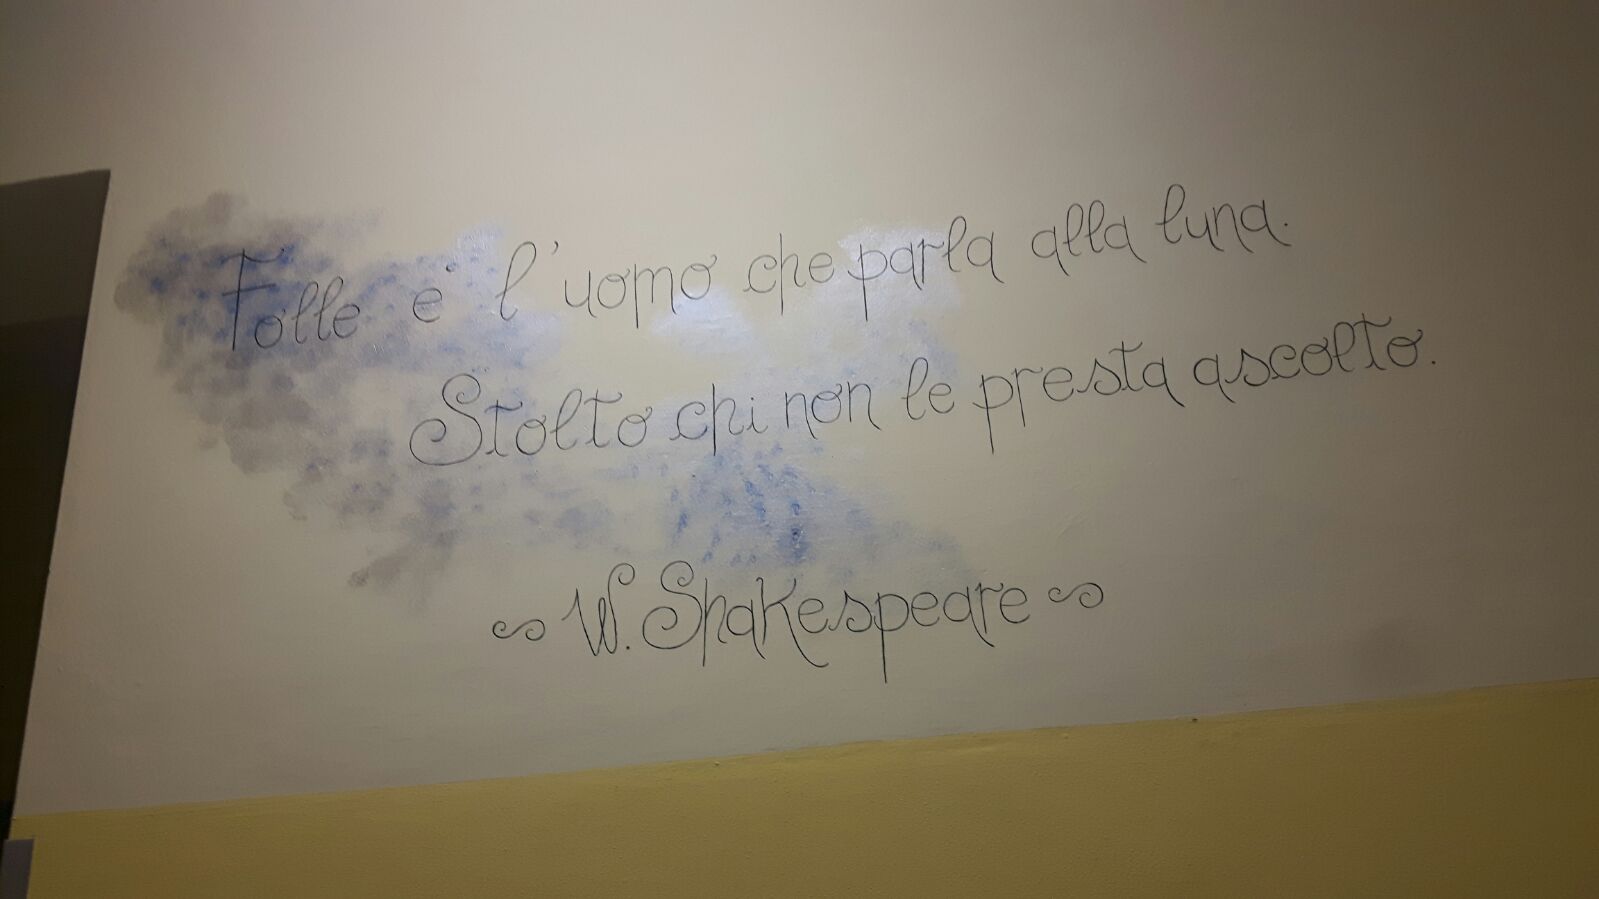 Folle e' l'uomo che parla alla luna.
Stolto chi non le presta ascolto.
W. Shakespeare